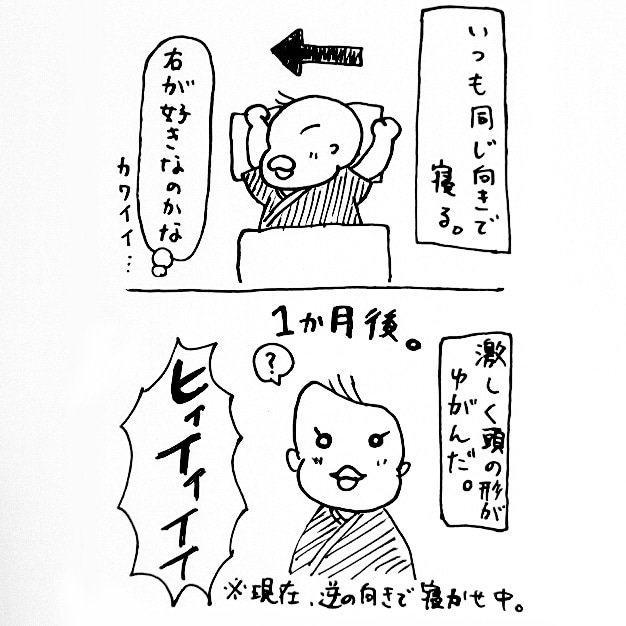 いつも同じ向きで
寝る。
右が好きなのかな
カワイイ…
1か月後。
激しく頭の形が
ゆがんだ。
?
ヒィイィイイイ
※現在、逆の向きで寝かせ中。